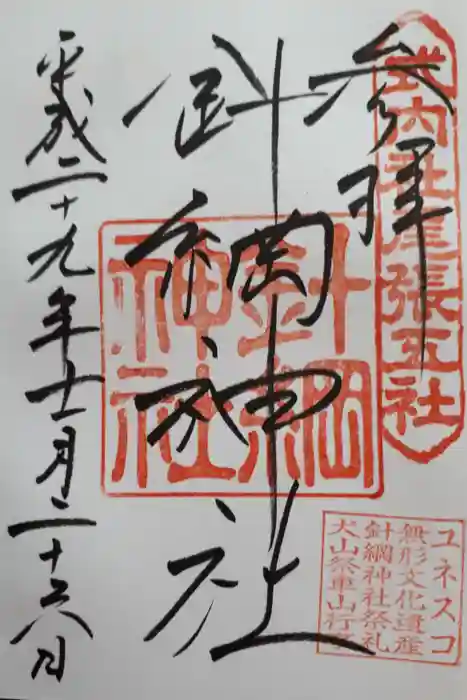 参拝
式内社尾張五社
針綱神社
針綱
神社
平成二十九年十二月二十六日
ユネスコ
無形文化遺産
針綱神社祭礼
犬山祭車山行事